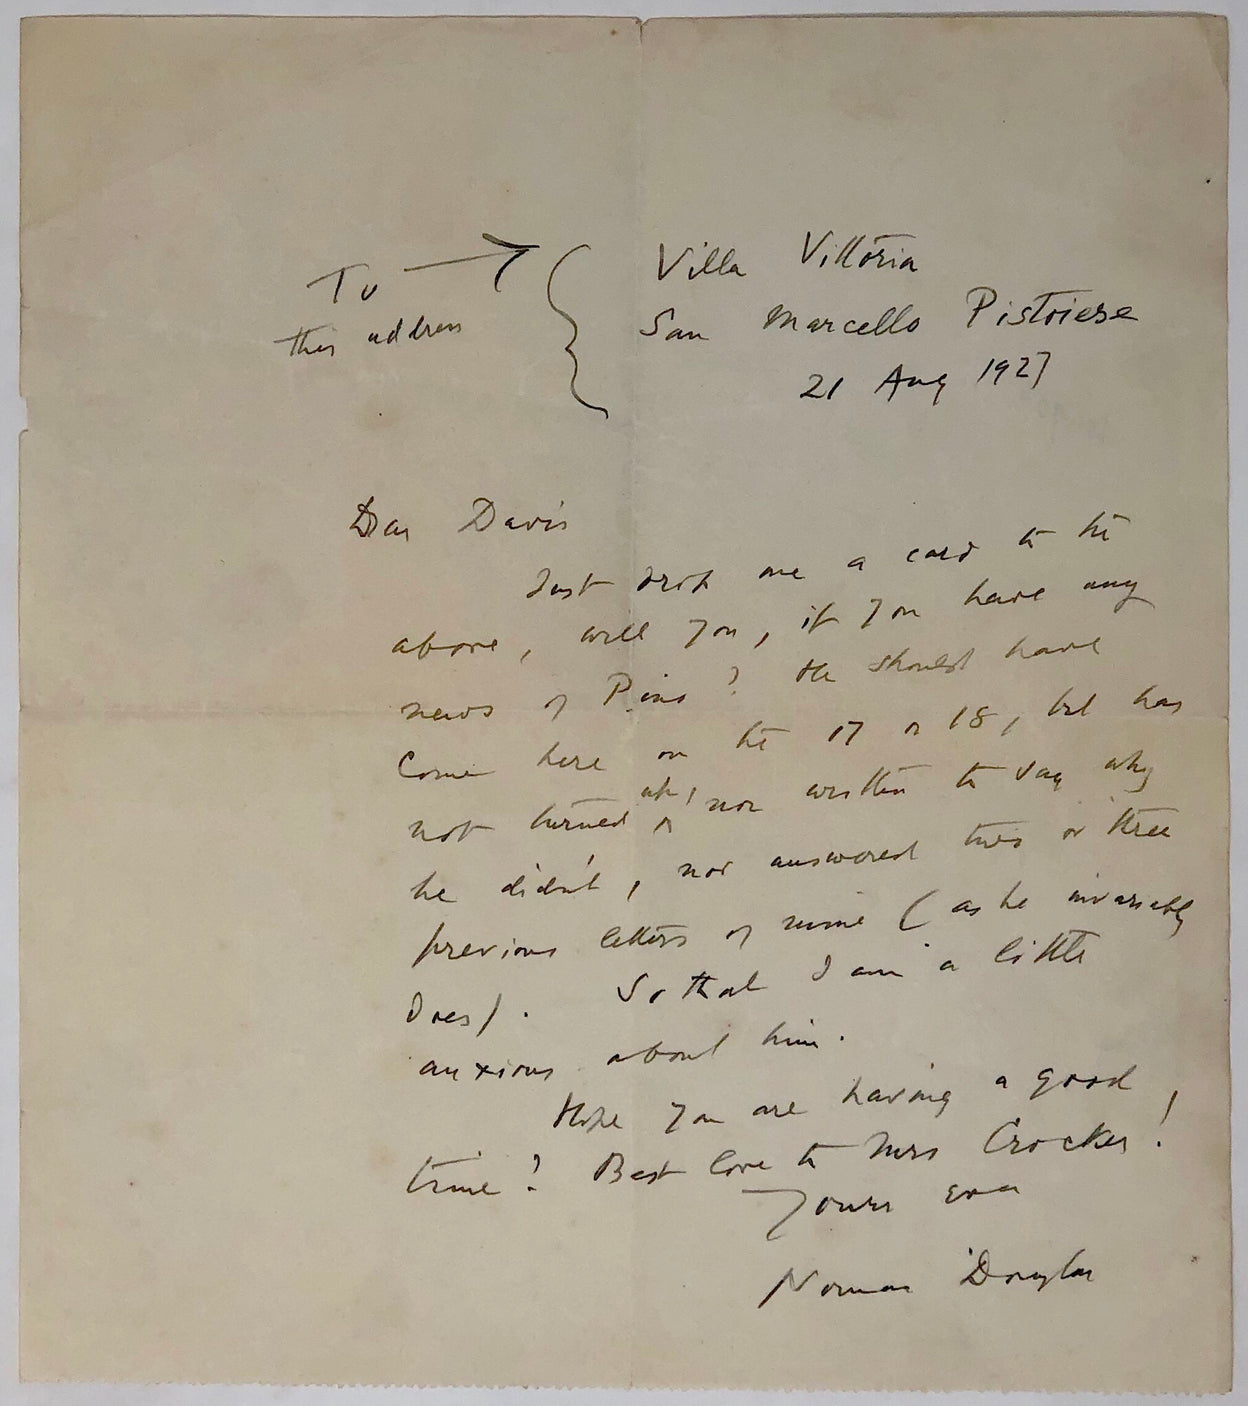 To → { Villa Vittoria
this address San Marcello Pistoiese
21 Aug 1927
Dear Davis
Just drop me a card to the
above, will you, if you have any
news of Pino? He should have
come here on the 17 or 18, but has
not turned up, nor written to say why
he didn't, nor answered two or three
previous letters of mine (as he invariably
does). So that I am a little
anxious about him.
Hope you are having a good
time? Best love to Mrs Crocker!
Yours ever
Norman Douglas